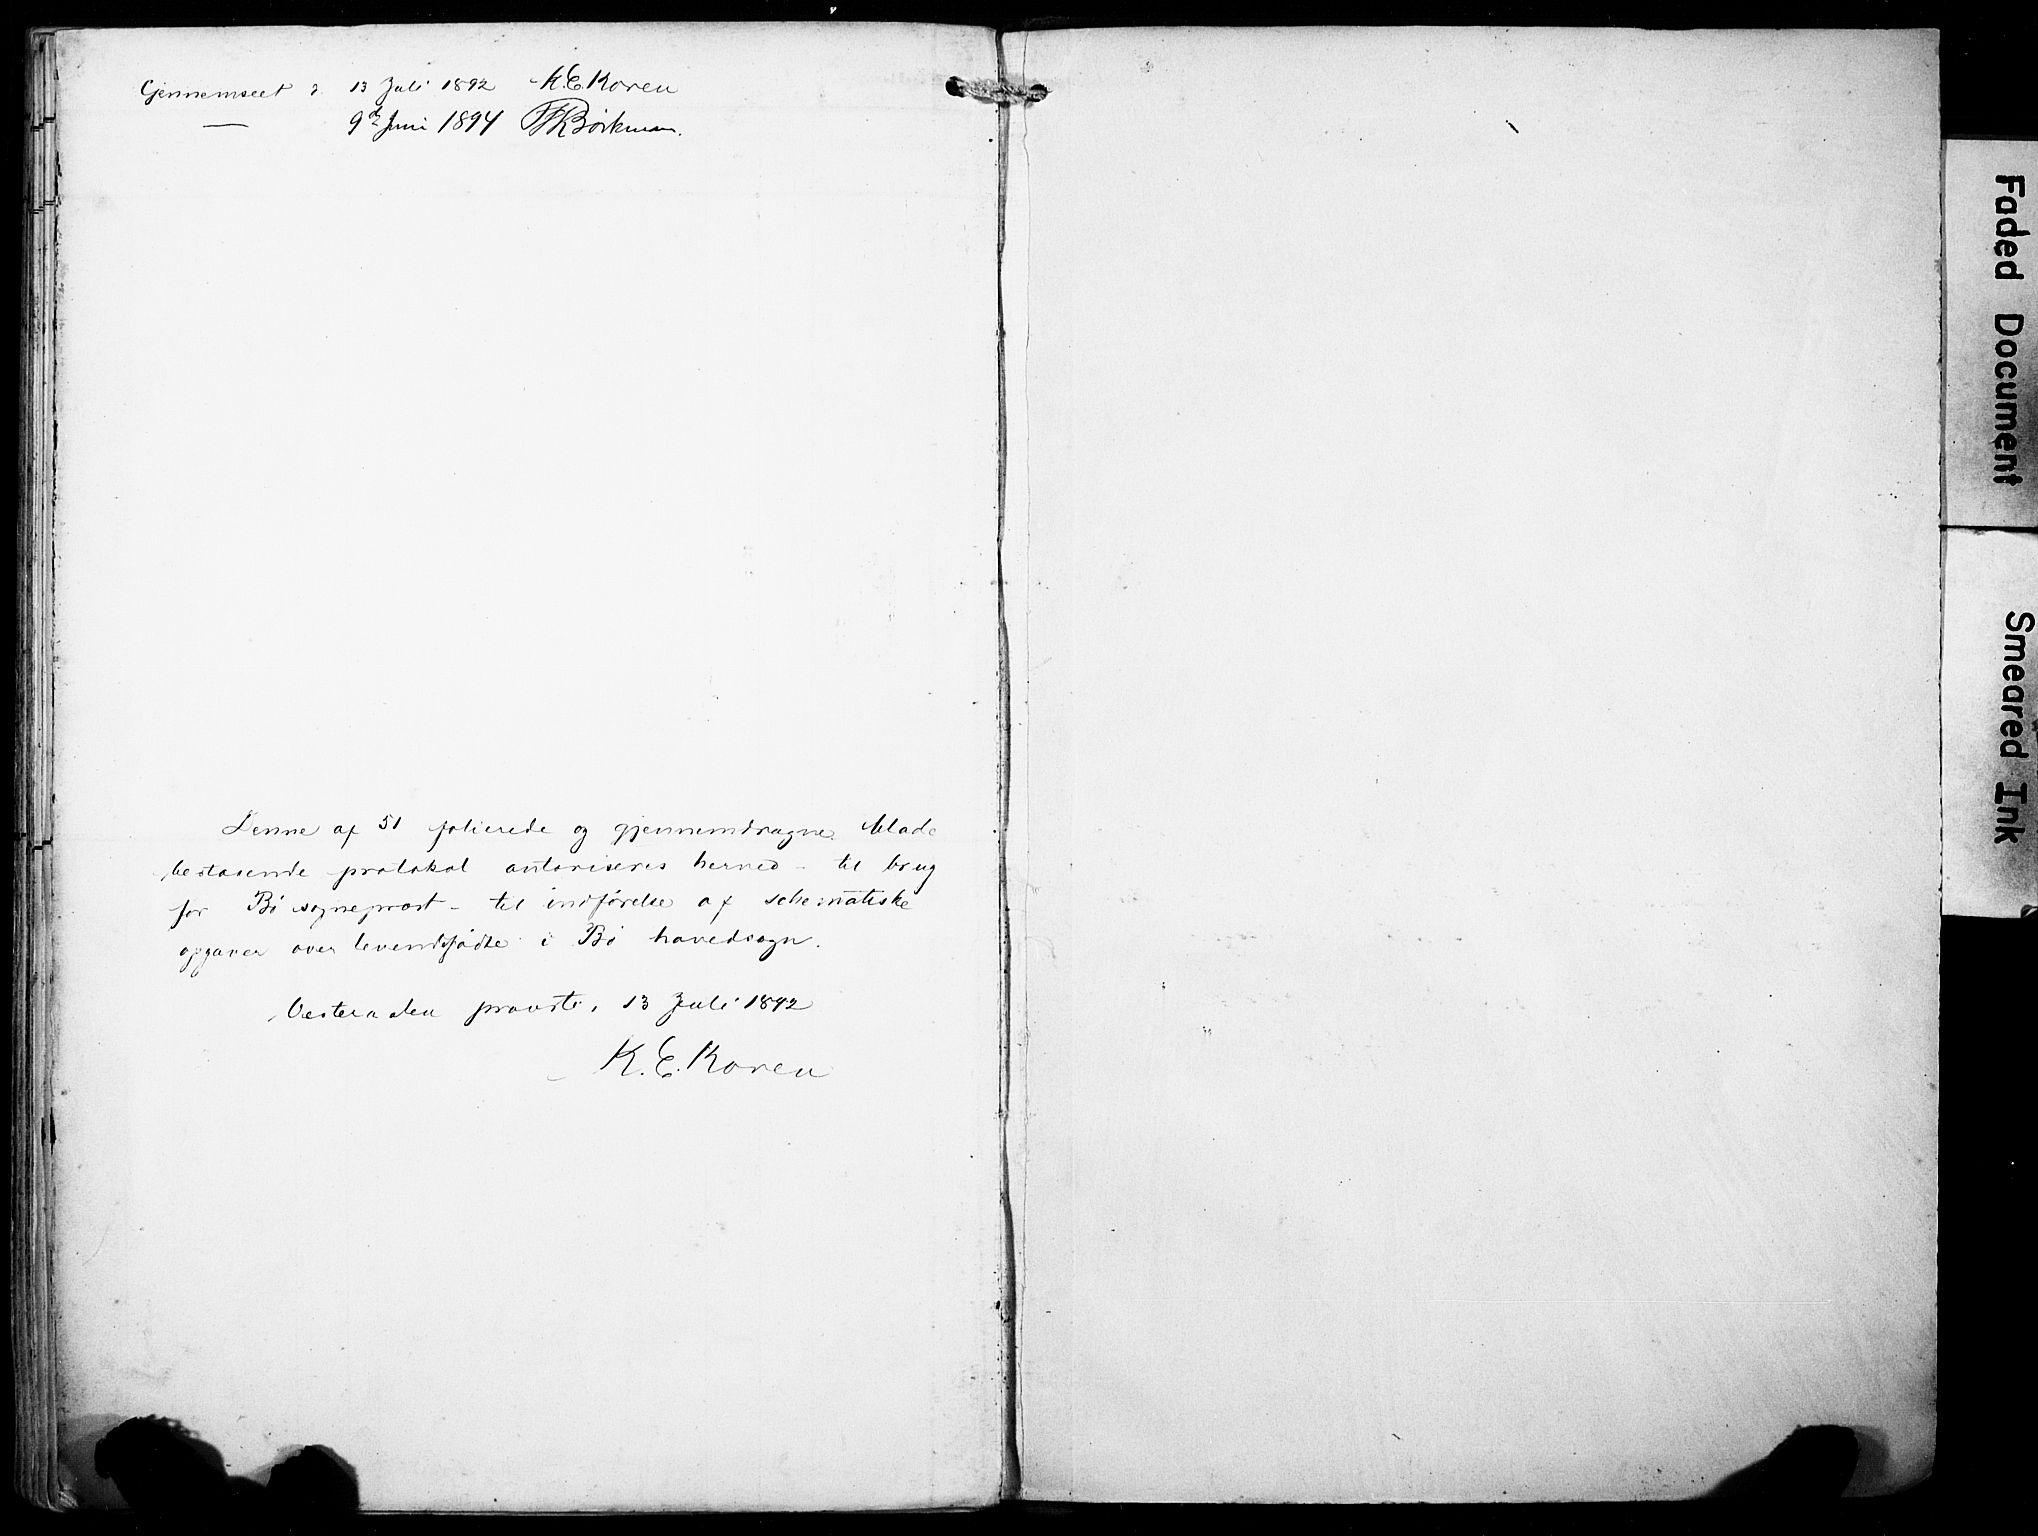 Gjennemseet d. 13 Juli 1892 K. E. Koren
— 9de Juni 1894
Denne af 51 folierede og gjennemdragne blade
bestaaende protokol autoriseres herved - til brug
for Bø sogneprest - til indførelse af schematiske
opgaver over levendefødte i Bø hovedsogn.
Vesteraalen provsti, 13 Juli 1892
K. E. Koren
Faded Document
Smeared Ink